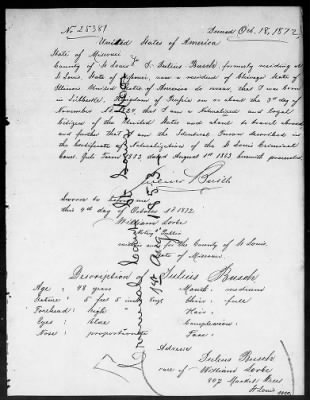 No 25381 Issued Oct. 18, 1872,
United States of America
State of Missouri
County of St Louis I, Julius Busch, formerly residing at
St Louis, State of Missouri, now a resident of Chicago State of
Illinois United States of America do swear, that I was born
in Kingdom of on or about the 3d day of
November 1824, that I am a Naturalized and Loyal
Citizen of the United States and about to travel abroad
and further that I am the Identical Person described in
the Certificate of Naturalization of the St Louis Criminal
Court, July Term 1853, dated August 1st herewith presented.
Julius Busch
Sworn to before me
this 4th day of October 1872
William
Notary Public
within and for the County of St Louis,
State of Missouri.
Description of Julius Busch
Age : 48 years Mouth : medium
Stature : 5 feet 5 inches Engl. Chin : full
Forehead : high Hair :
Eyes : blue Complexion :
Nose : proportionate Face :
Address
Julius Busch
care of William
Market Street
St Louis Mo.
Criminal Court St Louis State
1st Aug 1853